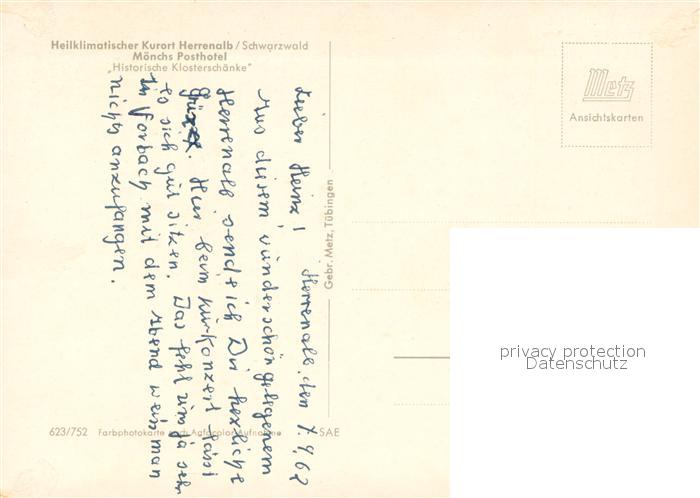 Heilklimatischer Kurort Herrenalb / Schwarzwald
Mönchs Posthotel
„Historische Klosterschänke"
Metz
Ansichtskarten
Gebr. Metz, Tübingen
Herrenalb, den 7.9.62
Lieber Heinz!
Aus diesem wunderschön gelegenem
Herrenalb send ich Dir herzliche
Grüsse. Hier beim Kurkonzert lässt
es sich gut sitzen. Das fehlt uns ja sehr
in Forbach mit dem Abend weiss man
nichts anzufangen.
623/752 Farbphotokarte nach Agfacolor-Aufnahme
SAE
privacy protection
Datenschutz